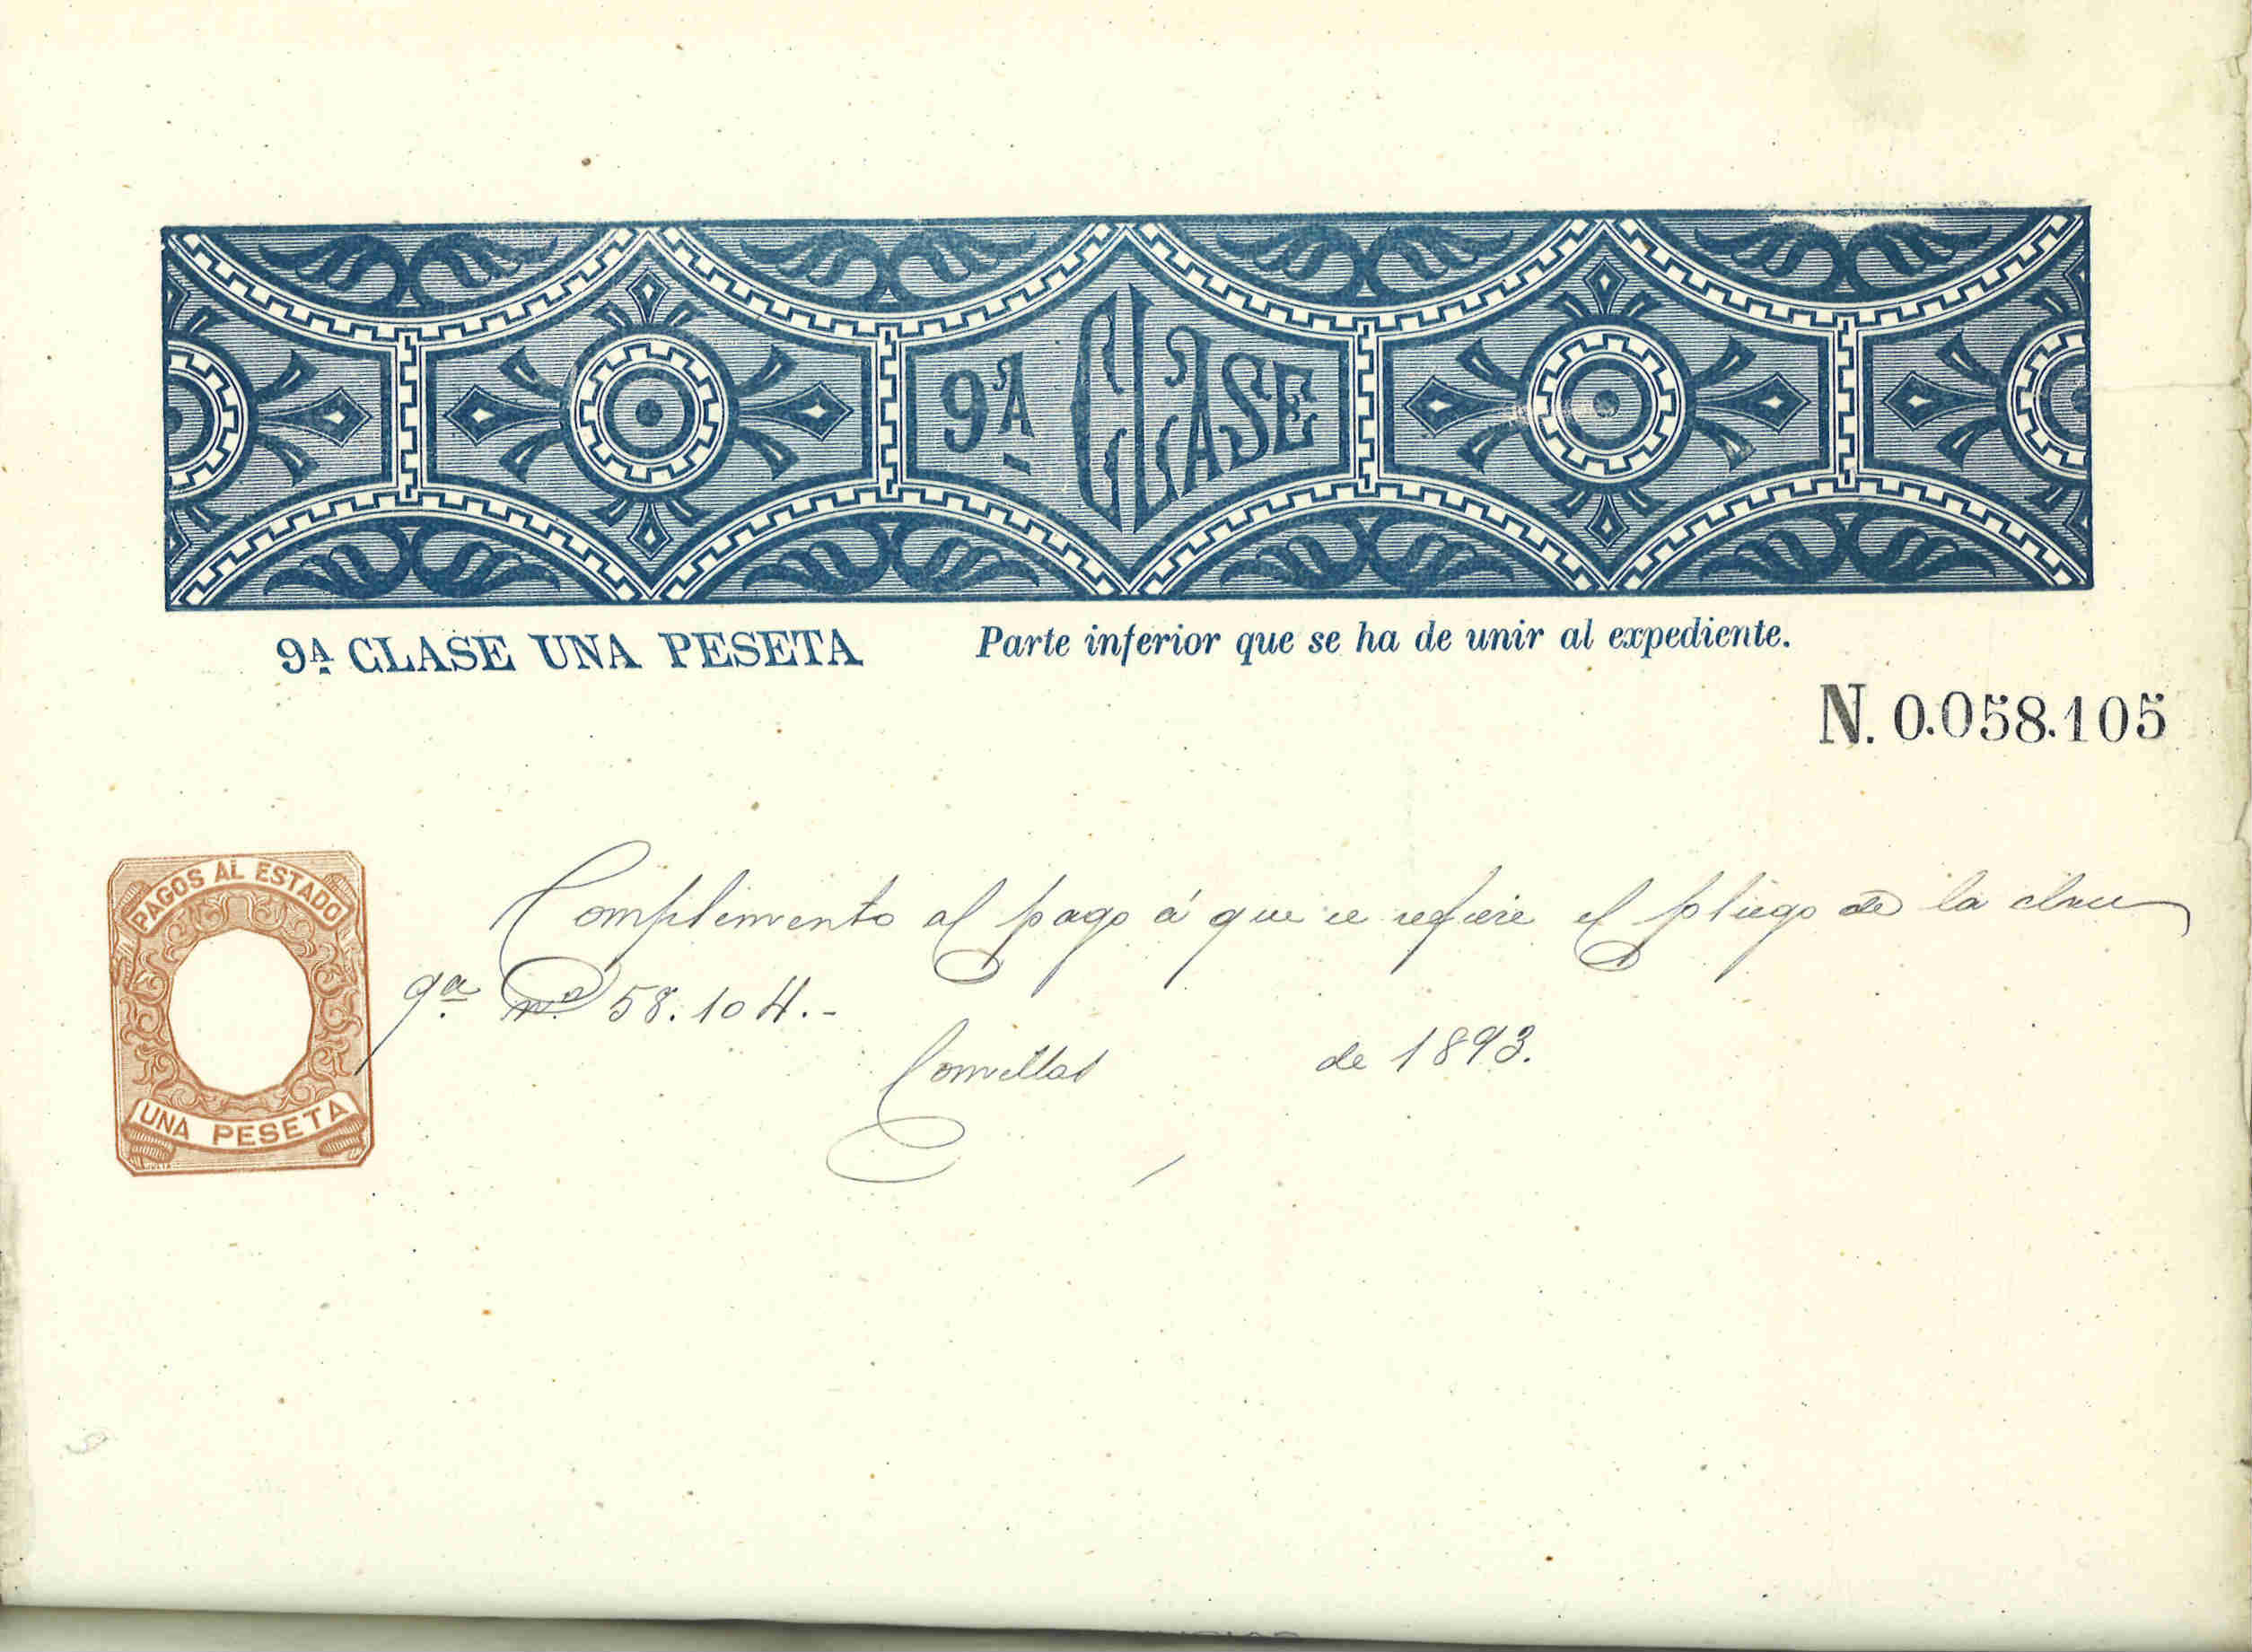 9ª CLASE
9ª CLASE UNA PESETA Parte inferior que se ha de unir al expediente.
N. 0.058.105
PAGOS AL ESTADO
UNA PESETA
Complemento al pago á que se refiere el pliego de la clase
9ª nº 58.104.-
Comillas de 1893.